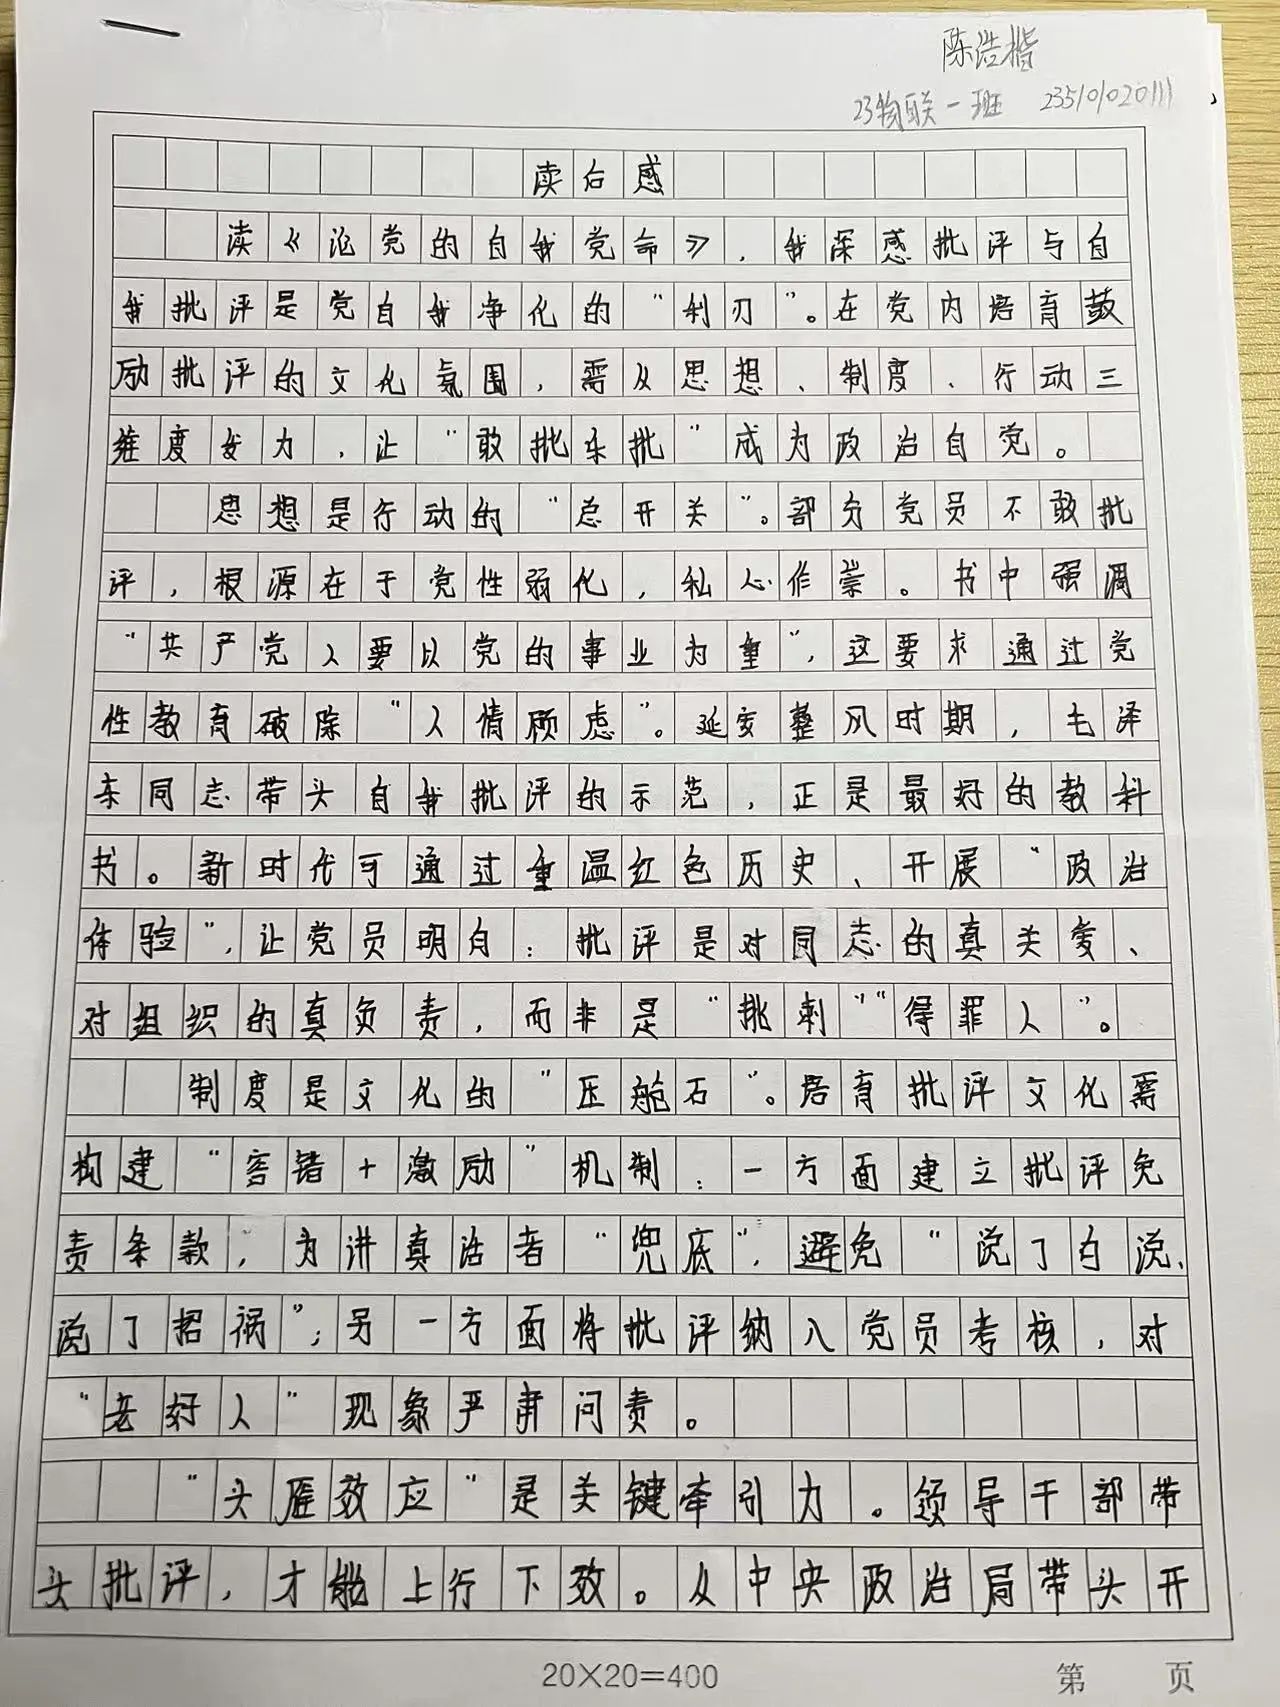 陈浩楷
23物联一班 23510102011
读后感
读《论党的自我党命》，我深感批评与自
我批评是党自我净化的“利刃”。在党内培育鼓
励批评的文化氛围，需从思想、制度、行动三
维度发力，让“敢批乐批”成为政治自党。
思想是行动的“总开关”。部分党员不敢批
评，根源在于党性弱化，私心作祟。书中强调
“共产党人要以党的事业为重”，这要求通过党
性教育破除“人情顾虑”。延安整风时期，毛泽
东同志带头自我批评的示范，正是最好的教科
书。新时代可通过重温红色历史、开展“政治
体验”，让党员明白：批评是对同志的真关爱、
对组织的真负责，而非是“挑刺”“得罪人”。
制度是文化的“压舱石”。培育批评文化需
构建“容错+激励”机制：一方面建立批评免
责条款，为讲真话者“兜底”，避免“说了白说、
说了招祸”；另一方面将批评纳入党员考核，对
“老好人”现象严肃问责。
“头雁效应”是关键牵引力。领导干部带
头批评，才能上行下效。从中央政治局带头开
20×20=400
第 页